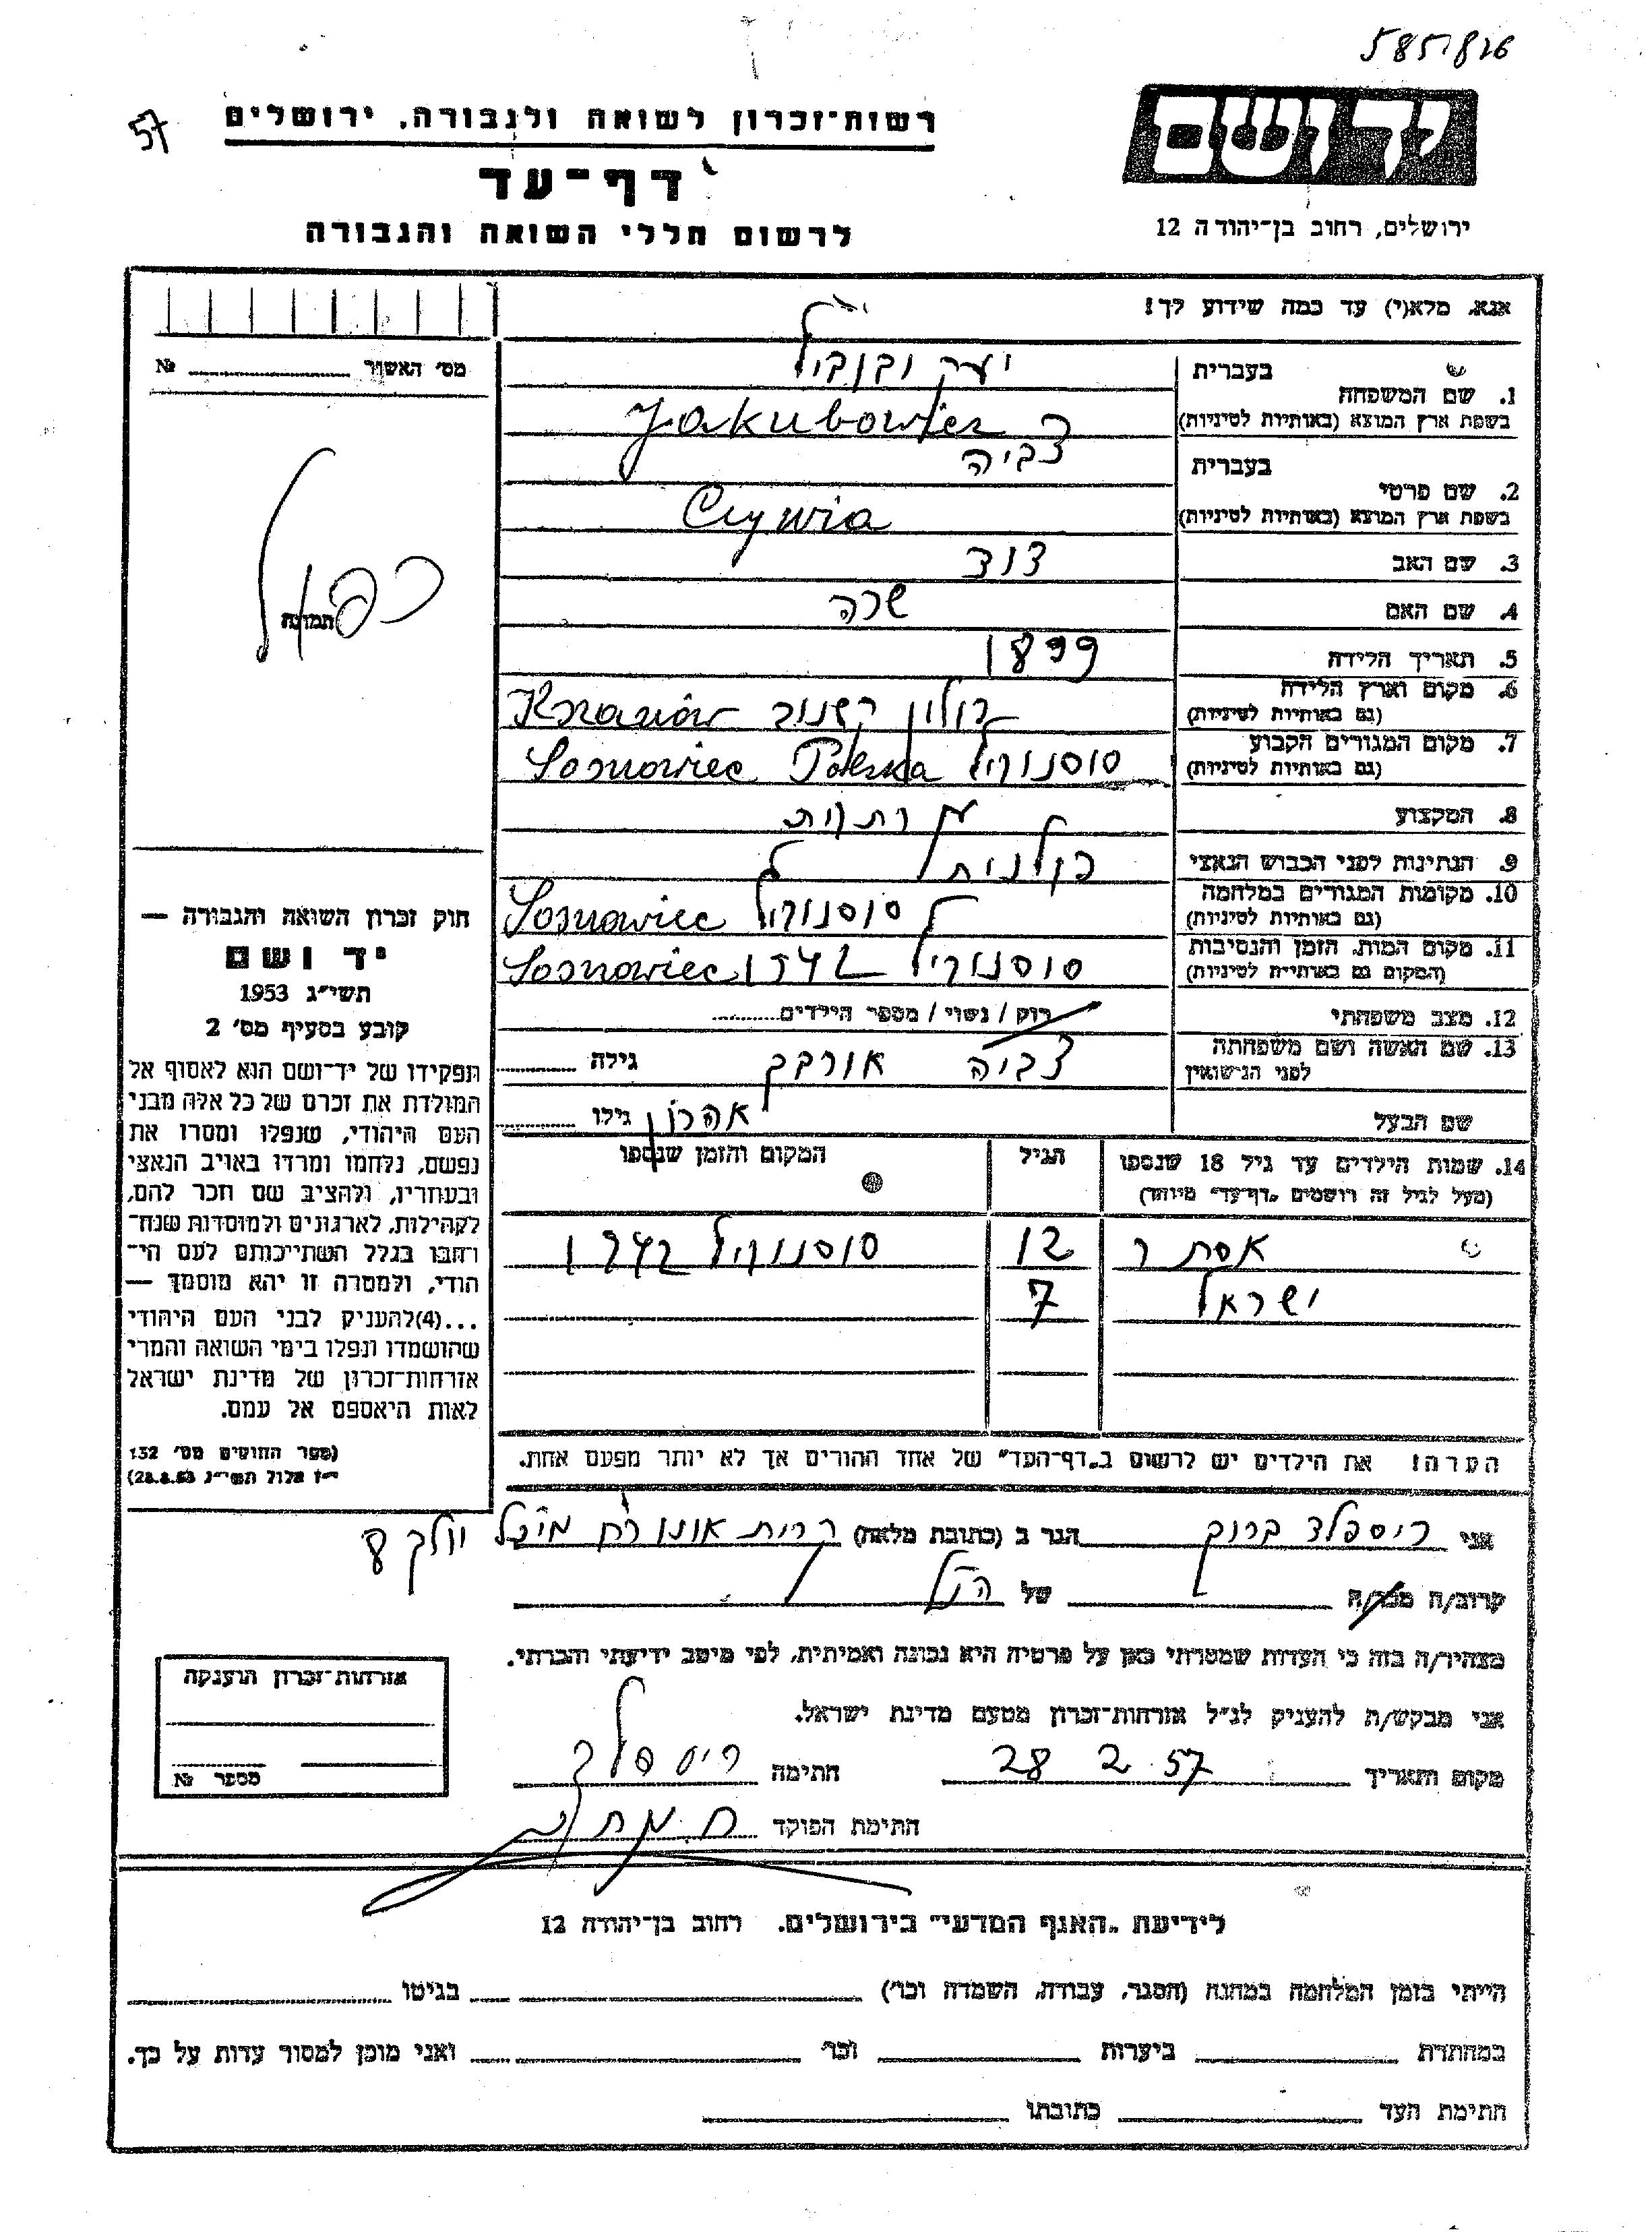 585826
57
יד ושם
רשות־זכרון לשואה ולגבורה, ירושלים
דף־עד
לרשום חללי השואה והגבורה
ירושלים, רחוב בן־יהודה 12
אנא, מלא(י) עד כמה שידוע לך!
מס׳ האשור № 
1. שם המשפחה
בעברית
יעקובוביץ
בשפת ארץ המוצא (באותיות לטיניות)
Jakubowicz
2. שם פרטי
בעברית
צביה
בשפת ארץ המוצא (באותיות לטיניות)
Cywia
3. שם האב דוד
4. שם האם שרה
5. תאריך הלידה 1899
6. מקום וארץ הלידה
(גם באותיות לטיניות)
פולין Krzanów
7. מקום המגורים הקבוע
(גם באותיות לטיניות)
סוסנוביץ Polska Sosnowiec
8. המקצוע
9. הנתינות לפני הכבוש הנאצי פולנית
10. מקומות המגורים במלחמה
(גם באותיות לטיניות)
סוסנוביץ Sosnowiec
11. מקום המות, הזמן והנסיבות
(המקום גם באותיות לטיניות)
סוסנוביץ 1942 Sosnowiec
12. מצב משפחתי רווק / נשוי / מספר הילדים
13. שם האשה ושם משפחתה
לפני הנישואין
צביה אורבך גילה
שם הבעל אהרון גילו
14. שמות הילדים עד גיל 18 שנספו
(מעל לגיל זה רושמים „דף־עד״ מיוחד)
הגיל
המקום והזמן שנספו
אסתר 12 סוסנוביץ 1942
ישראל 7
הערה! את הילדים יש לרשום ב„דף־העד״ של אחד ההורים אך לא יותר מפעם אחת.
כפול
תמונה
חוק זכרון השואה והגבורה —
יד ושם
תשי״ג 1953
קובע בסעיף מס׳ 2
תפקידו של יד־ושם הוא לאסוף אל
המולדת את זכרם של כל אלה מבני
העם היהודי, שנפלו ומסרו את
נפשם, נלחמו ומרדו באויב הנאצי
ובעוזריו, ולהציב שם וזכר להם,
לקהילות, לארגונים ולמוסדות שנח־
רבו בגלל השתייכותם לעם הי־
הודי, ולמטרה זו יהא מוסמך —
...(4)להעניק לבני העם היהודי
שהושמדו ונפלו בימי השואה והמרי
אזרחות־זכרון של מדינת ישראל
לאות היאספם אל עמם.
(ספר החוקים מס׳ 132
י״ז אלול תשי״ג 28.8.53)
אני ריספלד ברוך הגר ב (כתובת מלאה) קרית אונו
קרוב/ה מכר/ה של הנ״ל
מצהיר/ה בזה כי העדות שמסרתי כאן על פרטיה היא נכונה ואמיתית, לפי מיטב ידיעתי והכרתי.
אני מבקש/ת להעניק לנ״ל אזרחות־זכרון מטעם מדינת ישראל.
מקום ותאריך 28 2 57 חתימה ריספלד
חתימת הפוקד
אזרחות־זכרון הוענקה
מספר №
לידיעת „האגף המדעי״ בירושלים. רחוב בן־יהודה 12
הייתי בזמן המלחמה במחנה (הסגר, עבודה, השמדה וכו׳) בגיטו
במחתרת ביערות וכו׳ ואני מוכן למסור עדות על כך.
חתימת העד כתובתו